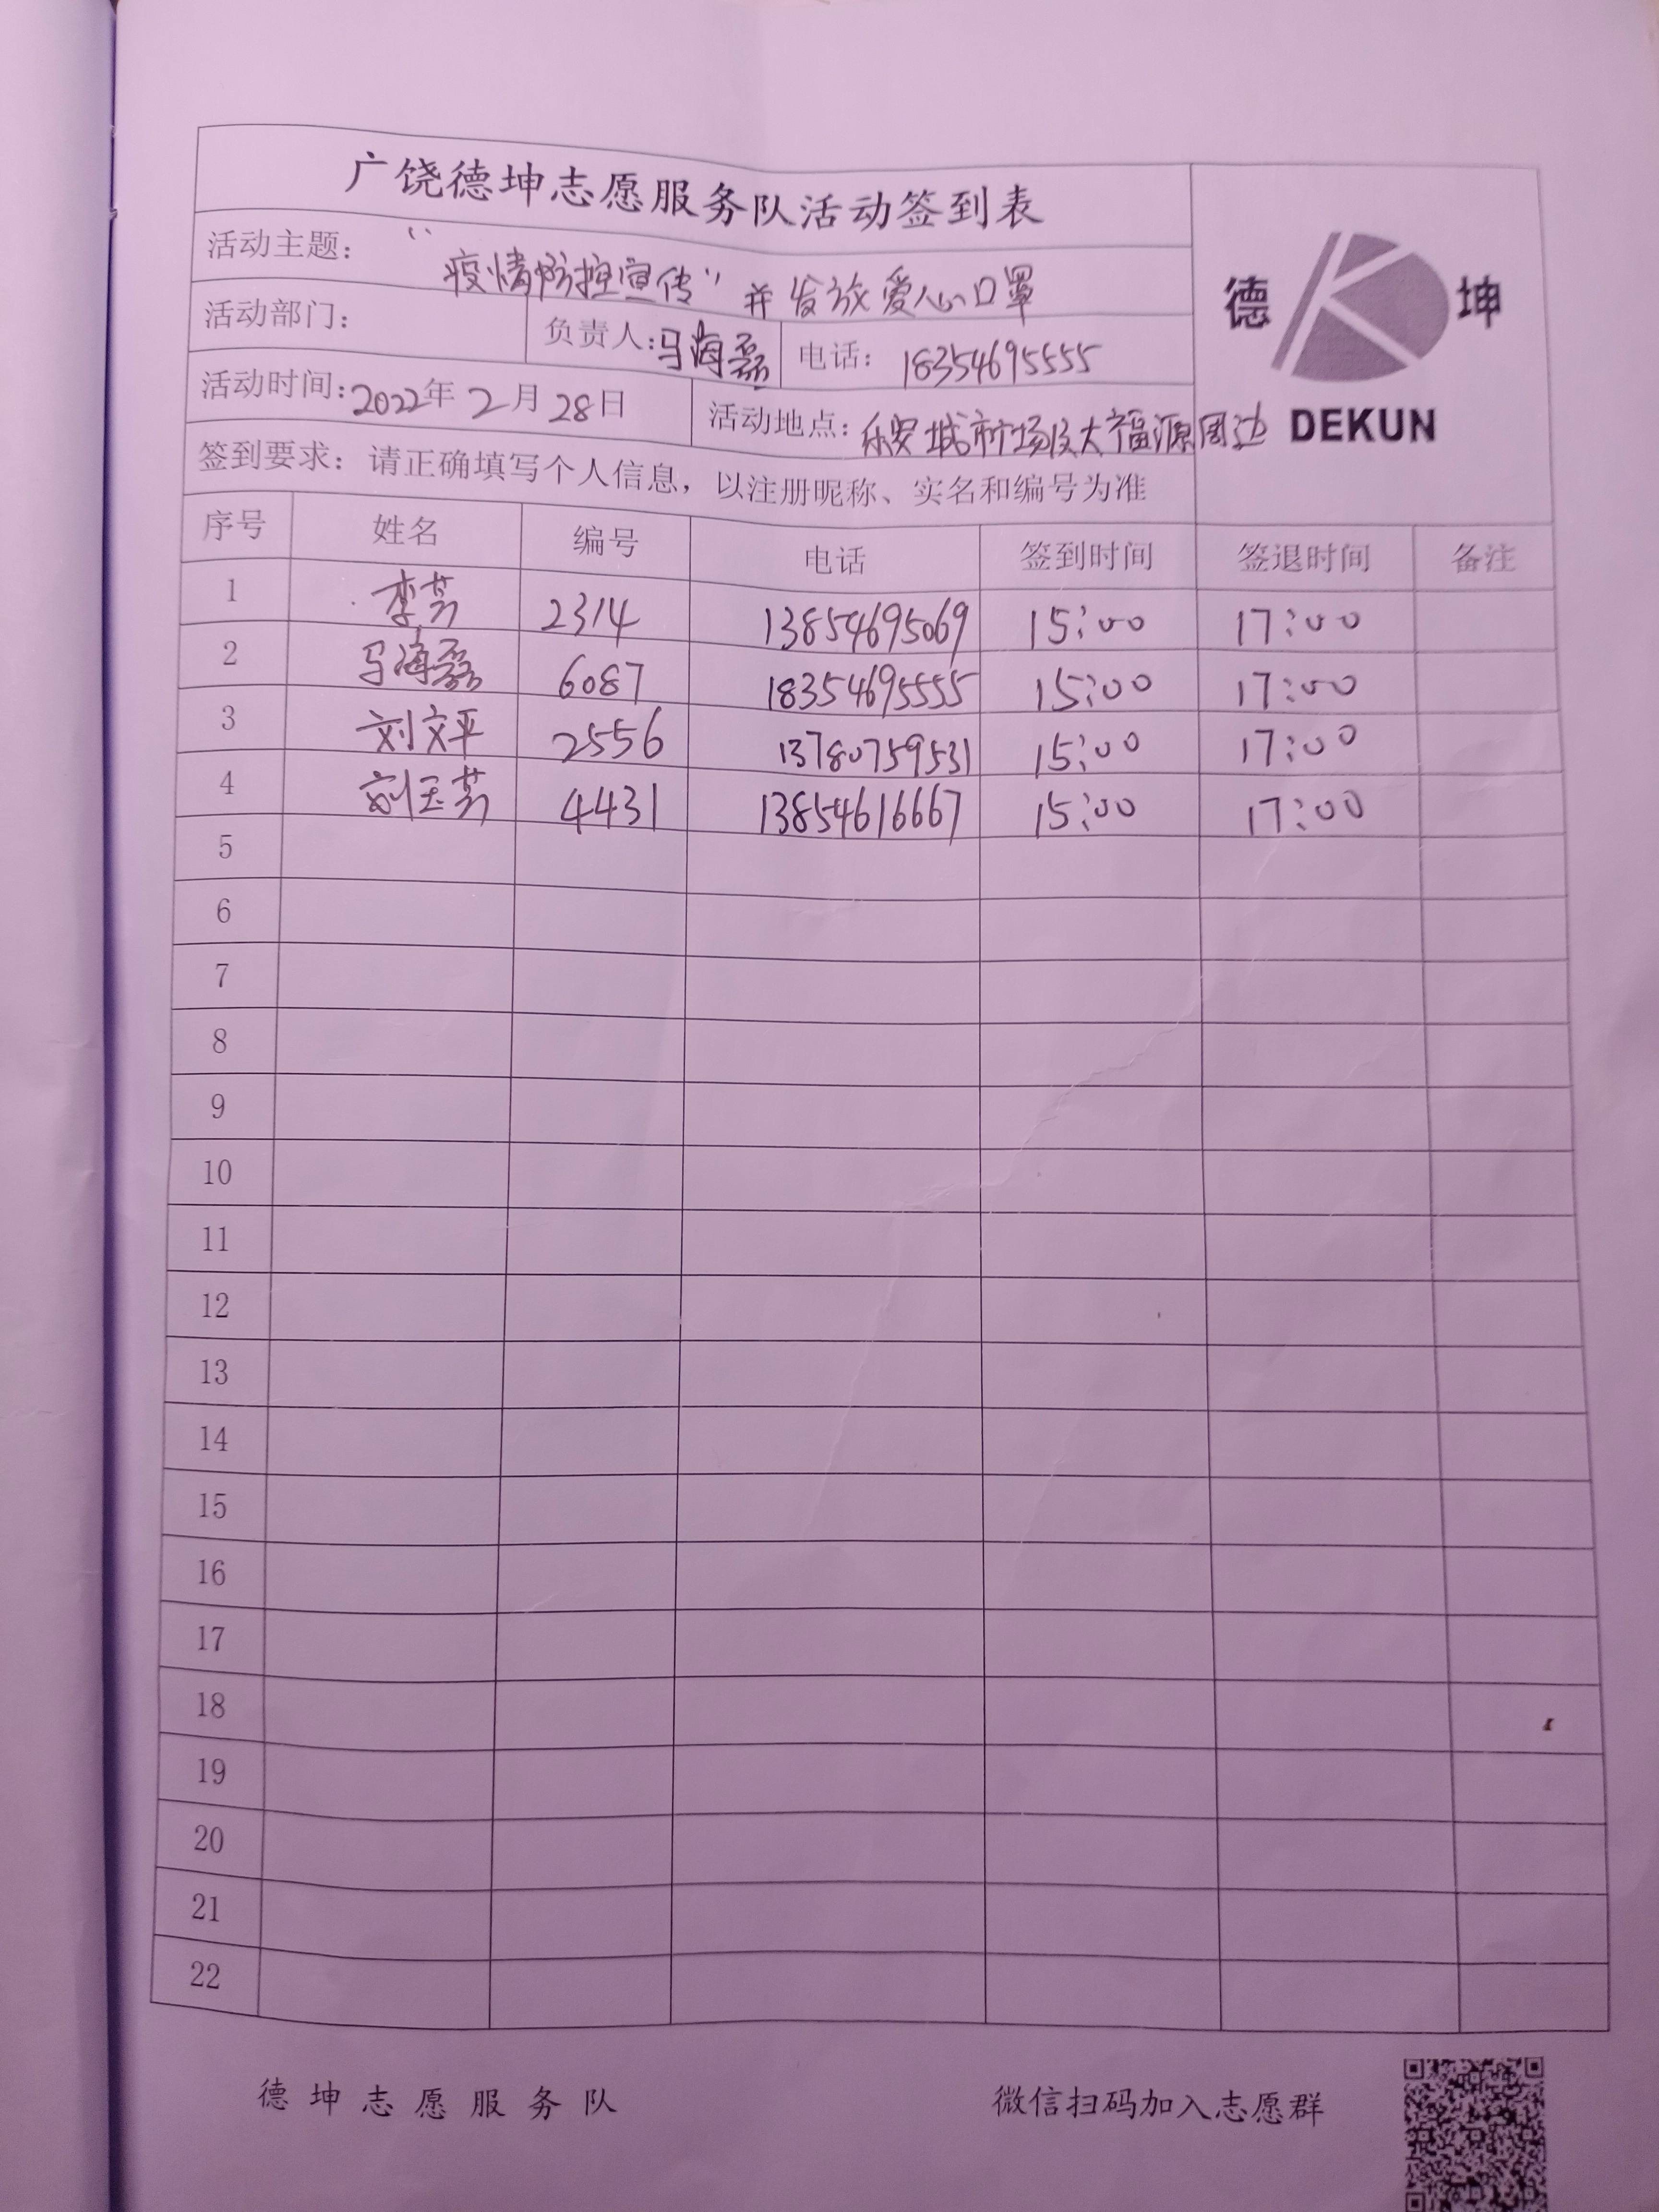 广饶德坤志愿服务队活动签到表
活动主题：“疫情防控宣传”并发放爱心口罩
德 坤
DEKUN
活动部门： 负责人：马海磊 电话：18354695555
活动时间：2022年2月28日 活动地点：乐安城市市场及大福源周边
签到要求：请正确填写个人信息，以注册昵称、实名和编号为准
序号 姓名 编号 电话 签到时间 签退时间 备注
1 李芳 2314 13854695069 15:00 17:00
2 马海磊 6087 18354695555 15:00 17:00
3 刘文平 2556 13780759531 15:00 17:00
4 刘玉芳 4431 13854616667 15:00 17:00
5
6
7
8
9
10
11
12
13
14
15
16
17
18
19
20
21
22
德坤志愿服务队 微信扫码加入志愿群